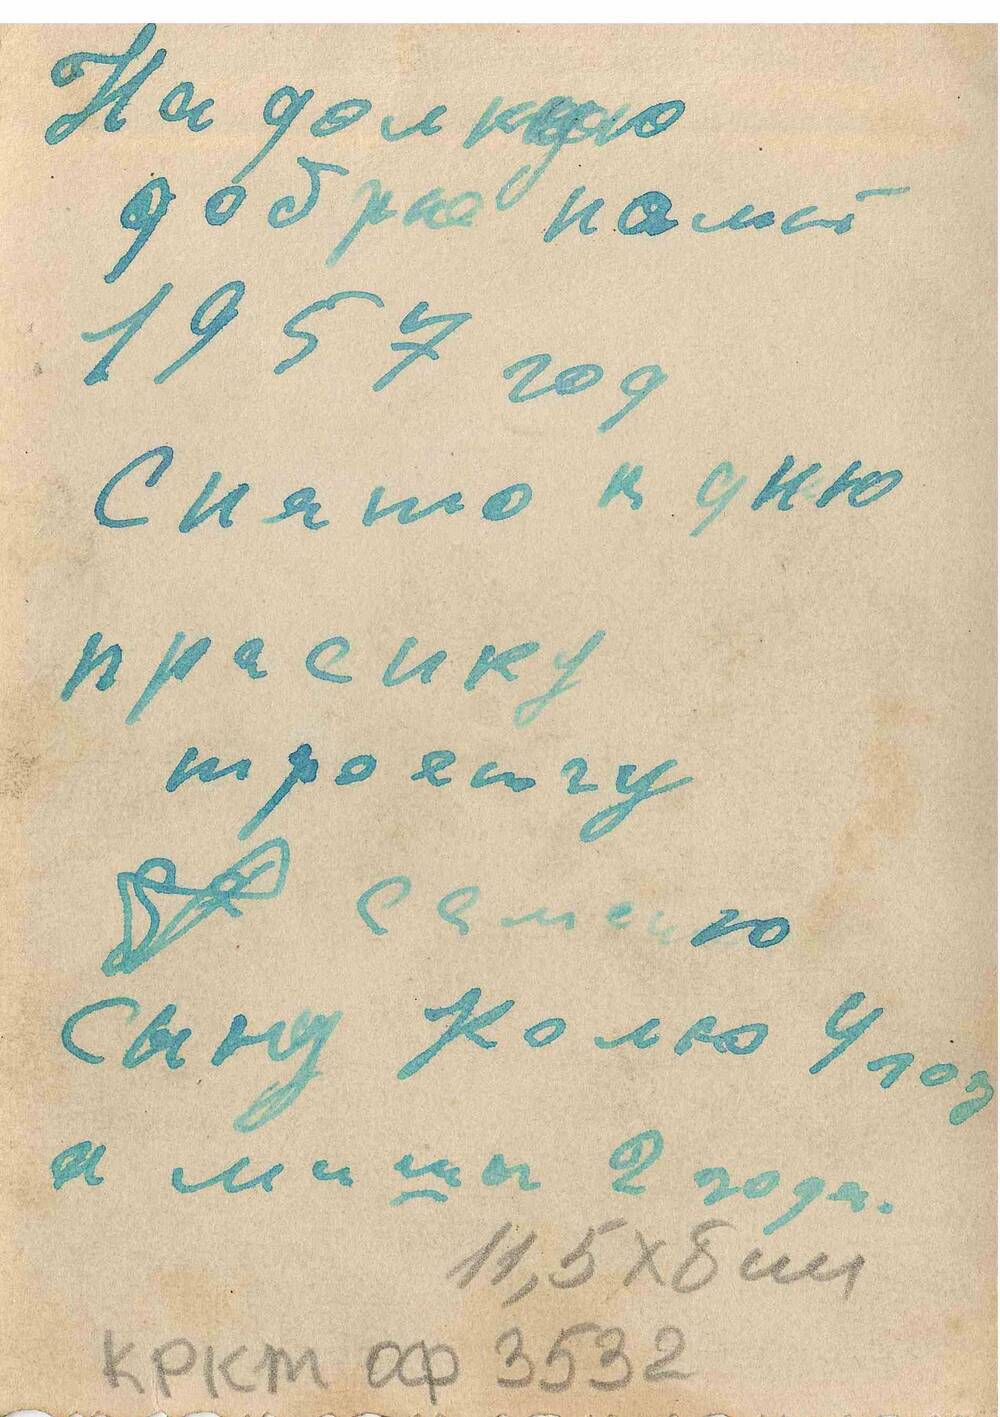 На долкую
добрую памят
1957 год
Снято к дню
прасику
троетцу
сем
Сыну Колю 4 год
а мишы 2 года.
11,5х8 см
КРКМ ОФ 3532